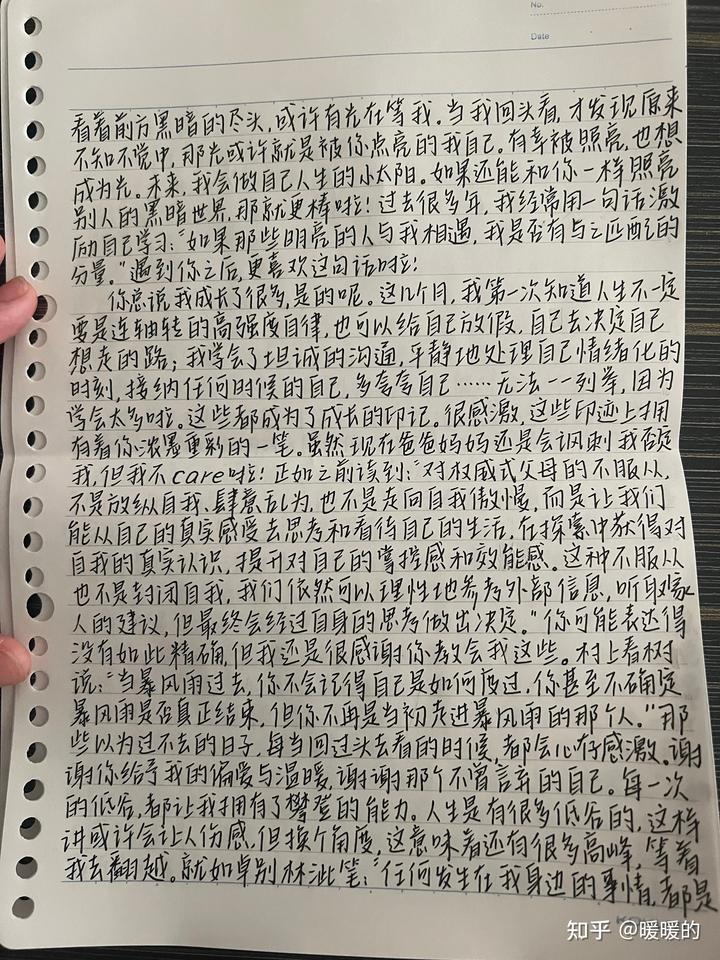 No.
Date
看着前方黑暗的尽头,或许有光在等我。当我回头看,才发现原来
不知不觉中,那光或许就是被你点亮的我自己。有幸被照亮,也想
成为光。未来,我会做自己人生的小太阳。如果还能和你一样照亮
别人的黑暗世界,那就更棒啦!过去很多年,我经常用一句话激
励自己学习:“如果那些明亮的人与我相遇,我是否有与之匹配的
分量。”遇到你之后,更喜欢这句话啦!
你总说我成长了很多,是的呢。这几个月,我第一次知道人生不一定
要是连轴转的高强度自律,也可以给自己放假,自己去决定自己
想走的路;我学会了坦诚的沟通,平静地处理自己情绪化的
时刻,接纳任何时候的自己,多夸夸自己……无法一一列举,因为
学会太多啦。这些都成为了成长的印记。很感激,这些印迹上拥
有着你浓墨重彩的一笔。虽然现在爸爸妈妈还是会讽刺我否定
我,但我不care啦!正如之前读到:“对权威式父母的不服从,
不是放纵自我、肆意乱为,也不是走向自我傲慢,而是让我们
能从自己的真实感受去思考和看待自己的生活,在探索中获得对
自我的真实认识,提升对自己的掌控感和效能感。这种不服从
也不是封闭自我,我们依然可以理性地参考外部信息,听取家
人的建议,但最终会经过自身的思考做出决定。”你可能表达得
没有如此精确,但我还是很感谢你教会我这些。村上春树
说:“当暴风雨过去,你不会记得自己是如何度过,你甚至不确定
暴风雨是否真正结束,但你不再是当初走进暴风雨的那个人。”那
些以为过不去的日子,每当回过头去看的时候,都会心存感激。谢
谢你给予我的偏爱与温暖,谢谢那个不曾言弃的自己。每一次
的低谷,都让我拥有了攀登的能力。人生是有很多低谷的,这样
讲或许会让人伤感,但换个角度,这意味着还有很多高峰,等着
我去翻越。就如卓别林泚笔:“任何发生在我身边的事情,都是
知乎 @暖暖的